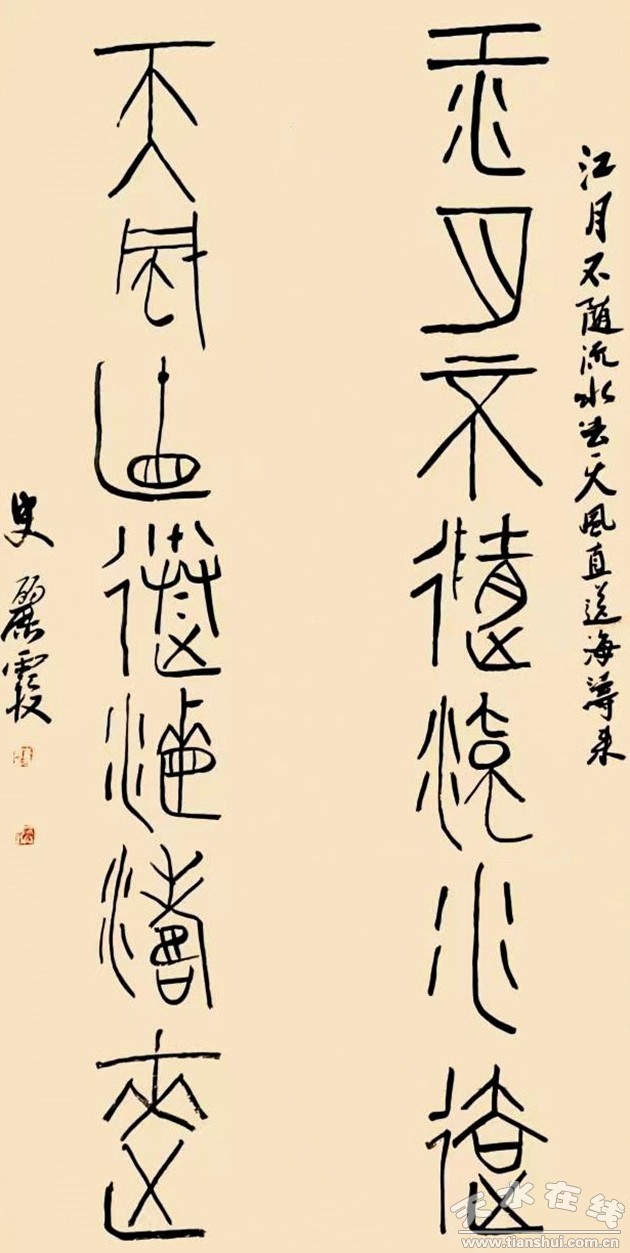 江月不随流水去天风直送海涛来
江月不随流水去
天风直送海涛来
史丽霞
天水在线
www.tianshui.com.cn